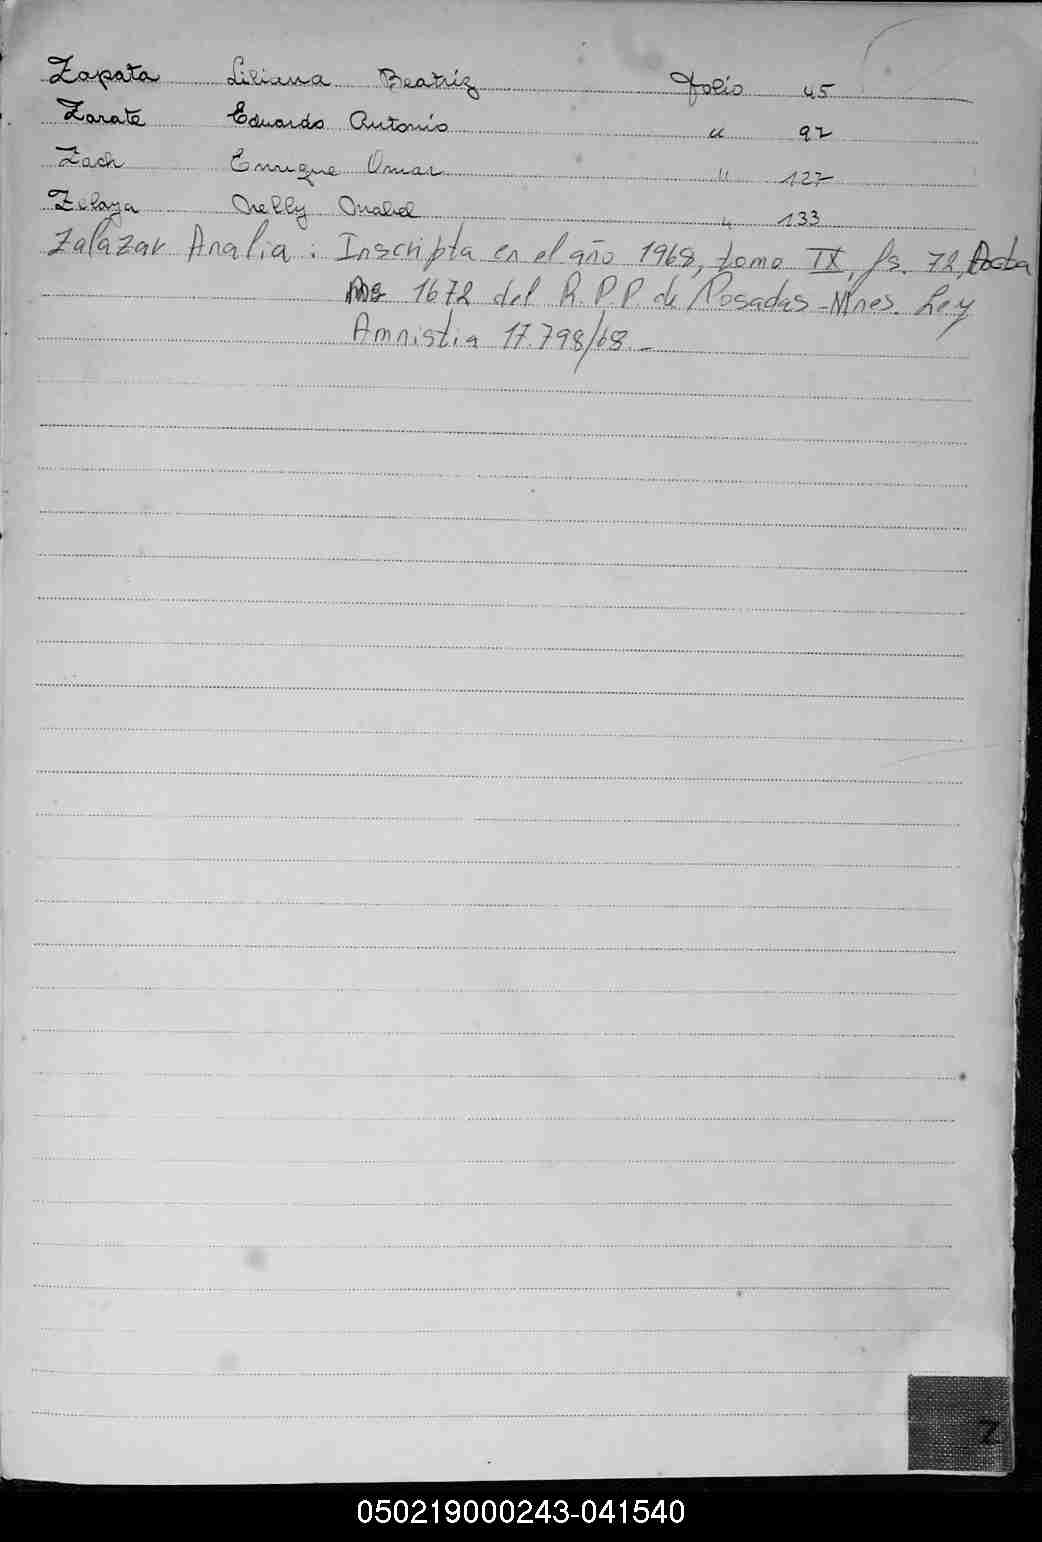 Zapata Liliana Beatriz folio 45
Zarate Eduardo Antonio " 92
Zach Enrique Omar " 127
Zelaya Nelly Mabel " 133
Zalazar Analia: Inscripta en el año 1968, tomo IX, fs. 72, Acta
1672 del R.P.P de Posadas-Mnes. Ley
Amnistia 17.798/68.-
Z
050219000243-041540